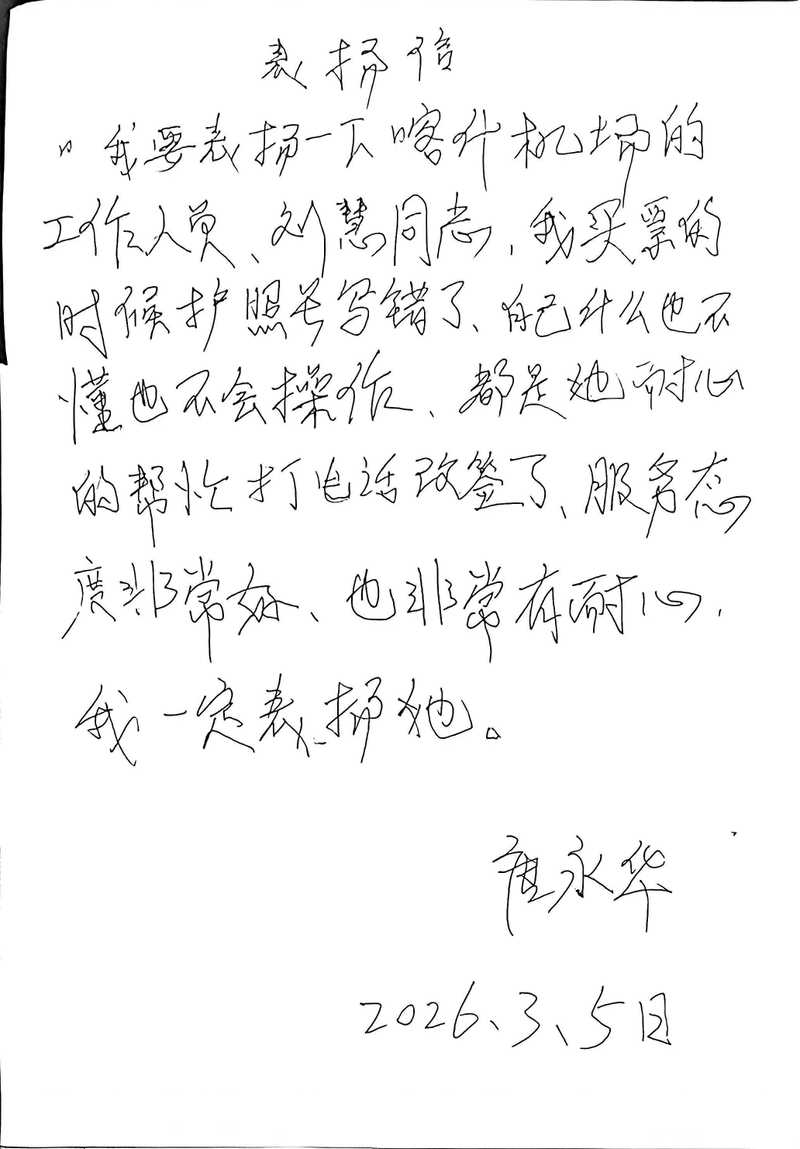 表扬信
"我要表扬一下喀什机场的
工作人员、刘慧同志,我买票的
时候护照号写错了、自己什么也不
懂也不会操作、都是她耐心
的帮忙打电话改签了、服务态
度非常好、也非常有耐心,
我一定表扬她。
崔永华
2026、3、5日